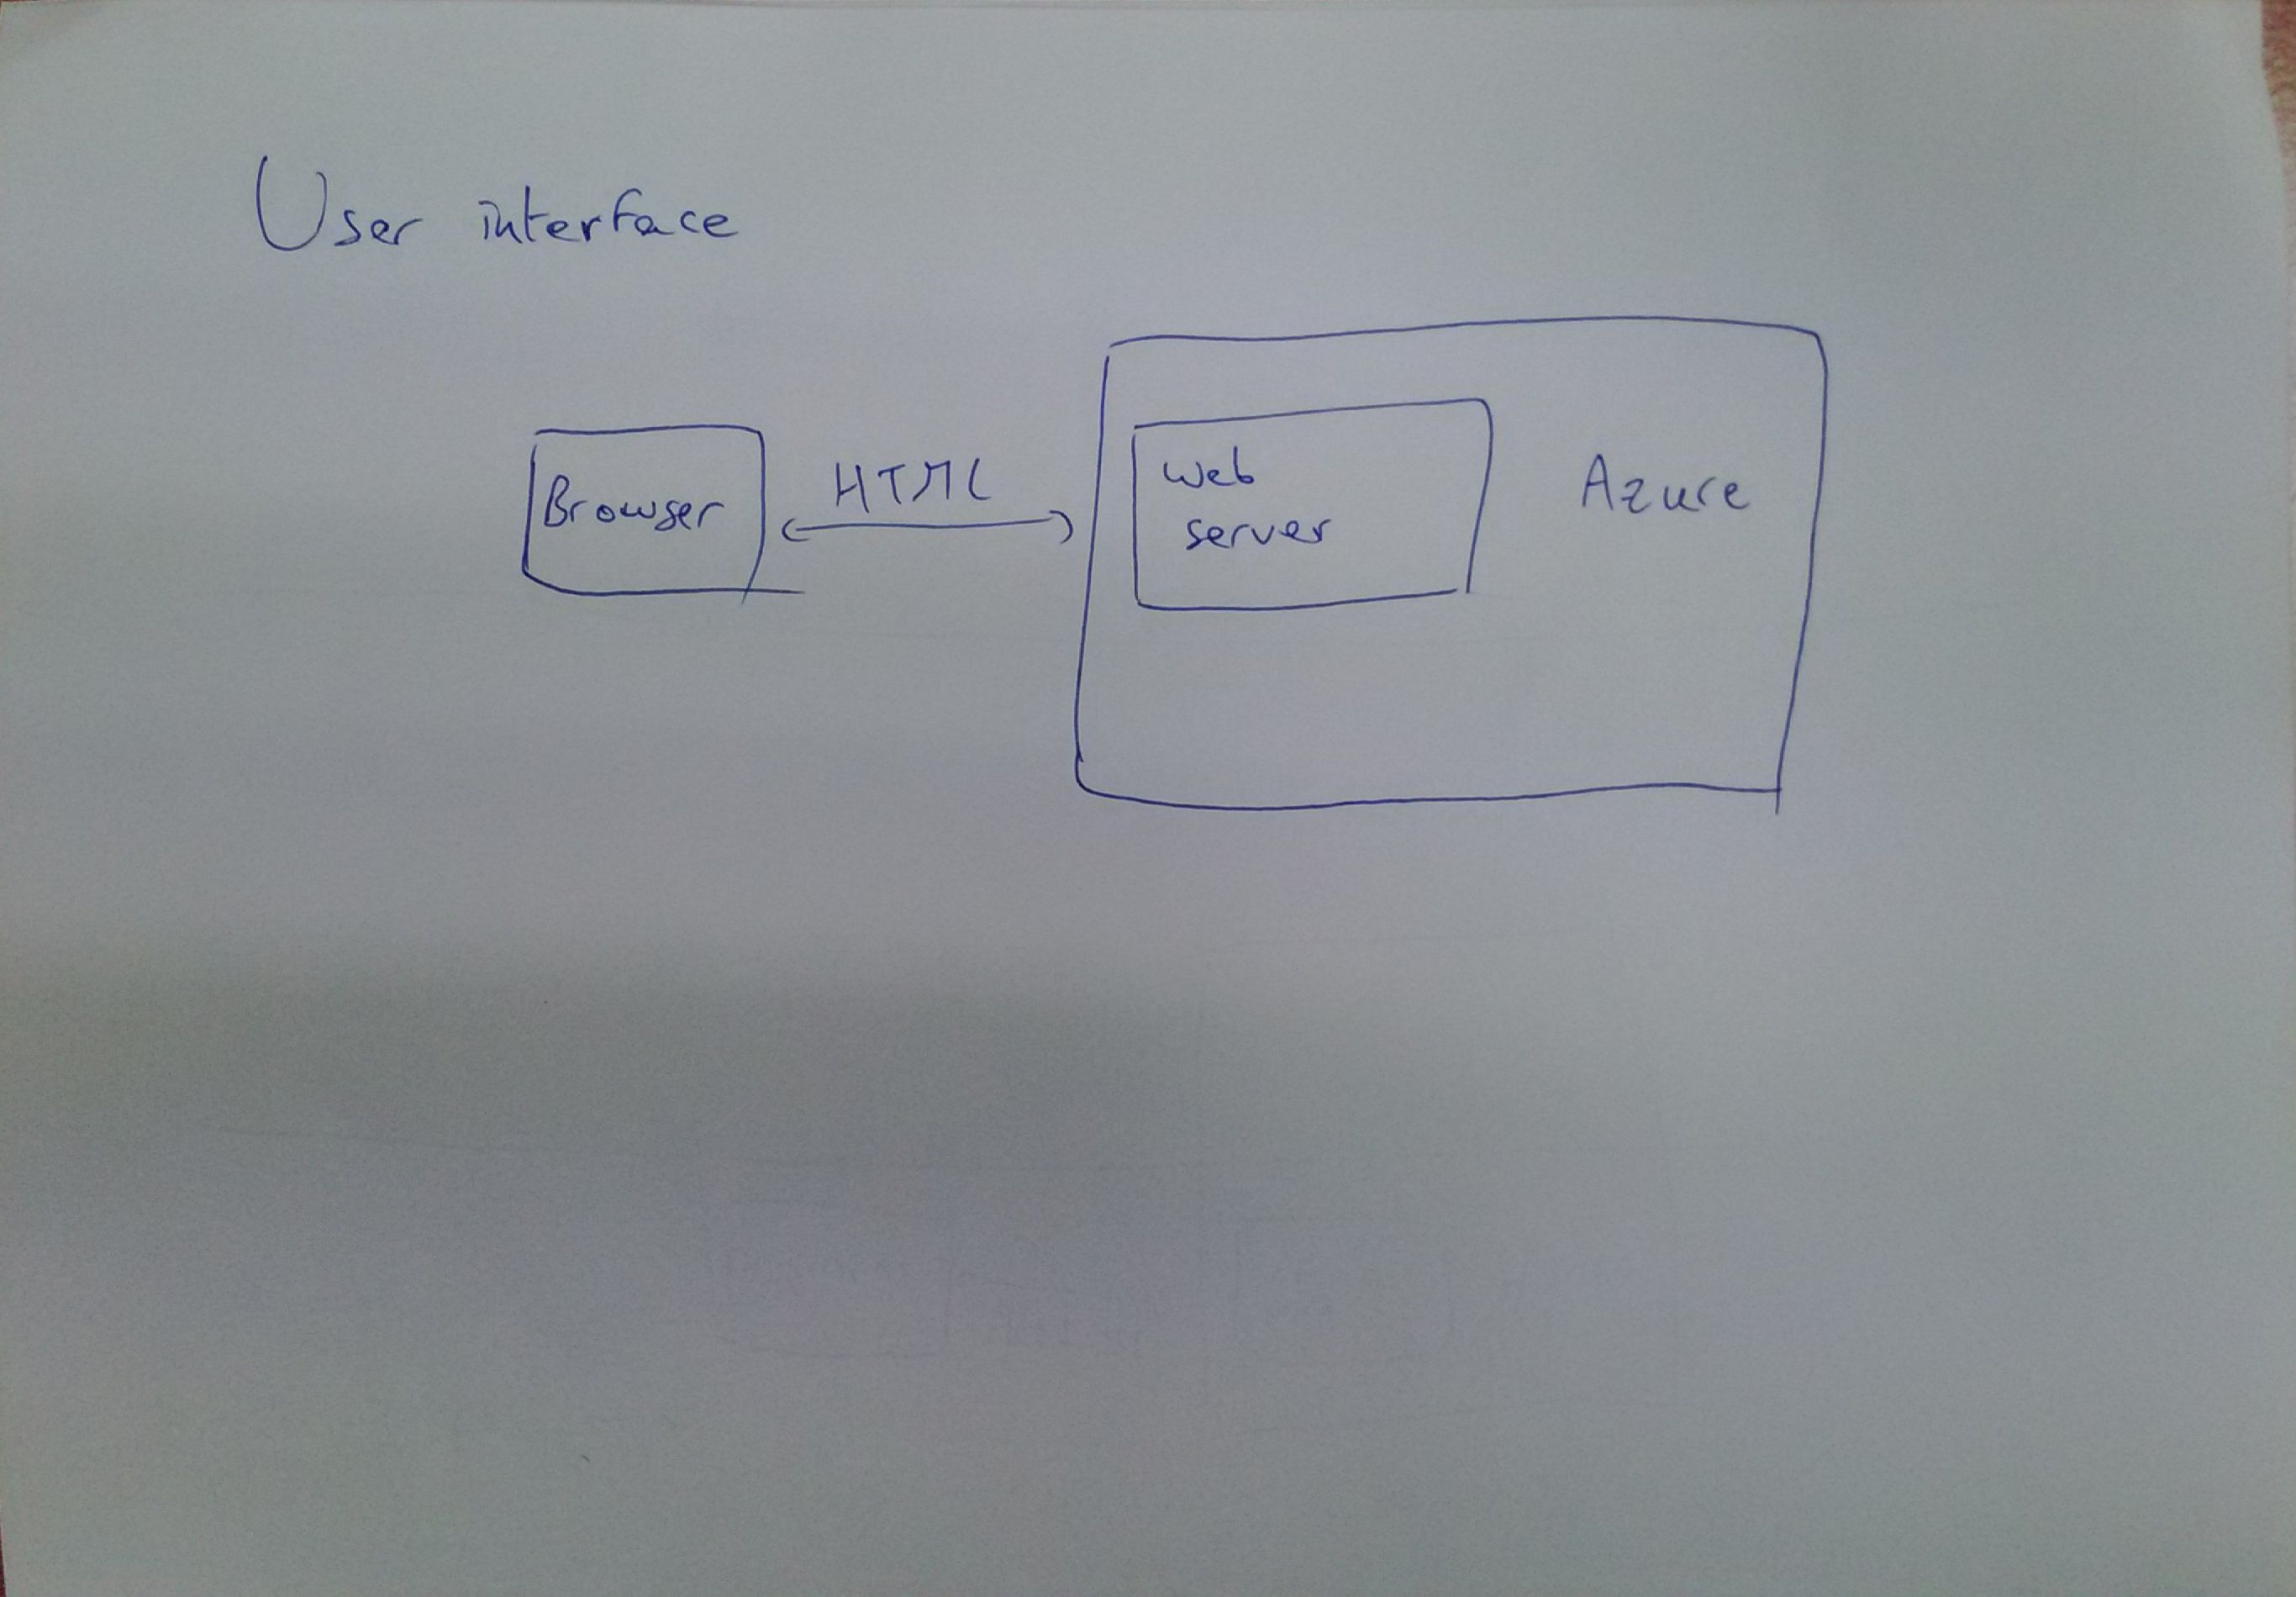 User interface
Browser
HTML
Web
server
Azure